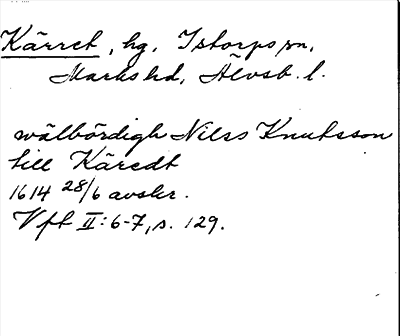 Kärret, hg, Istorps sn,
Marks hd, Älvsb. l.
wälbördigh Nilss Knutsson
till Käredt
1614 28/6 avskr.
Vft II:6-7, s. 129.